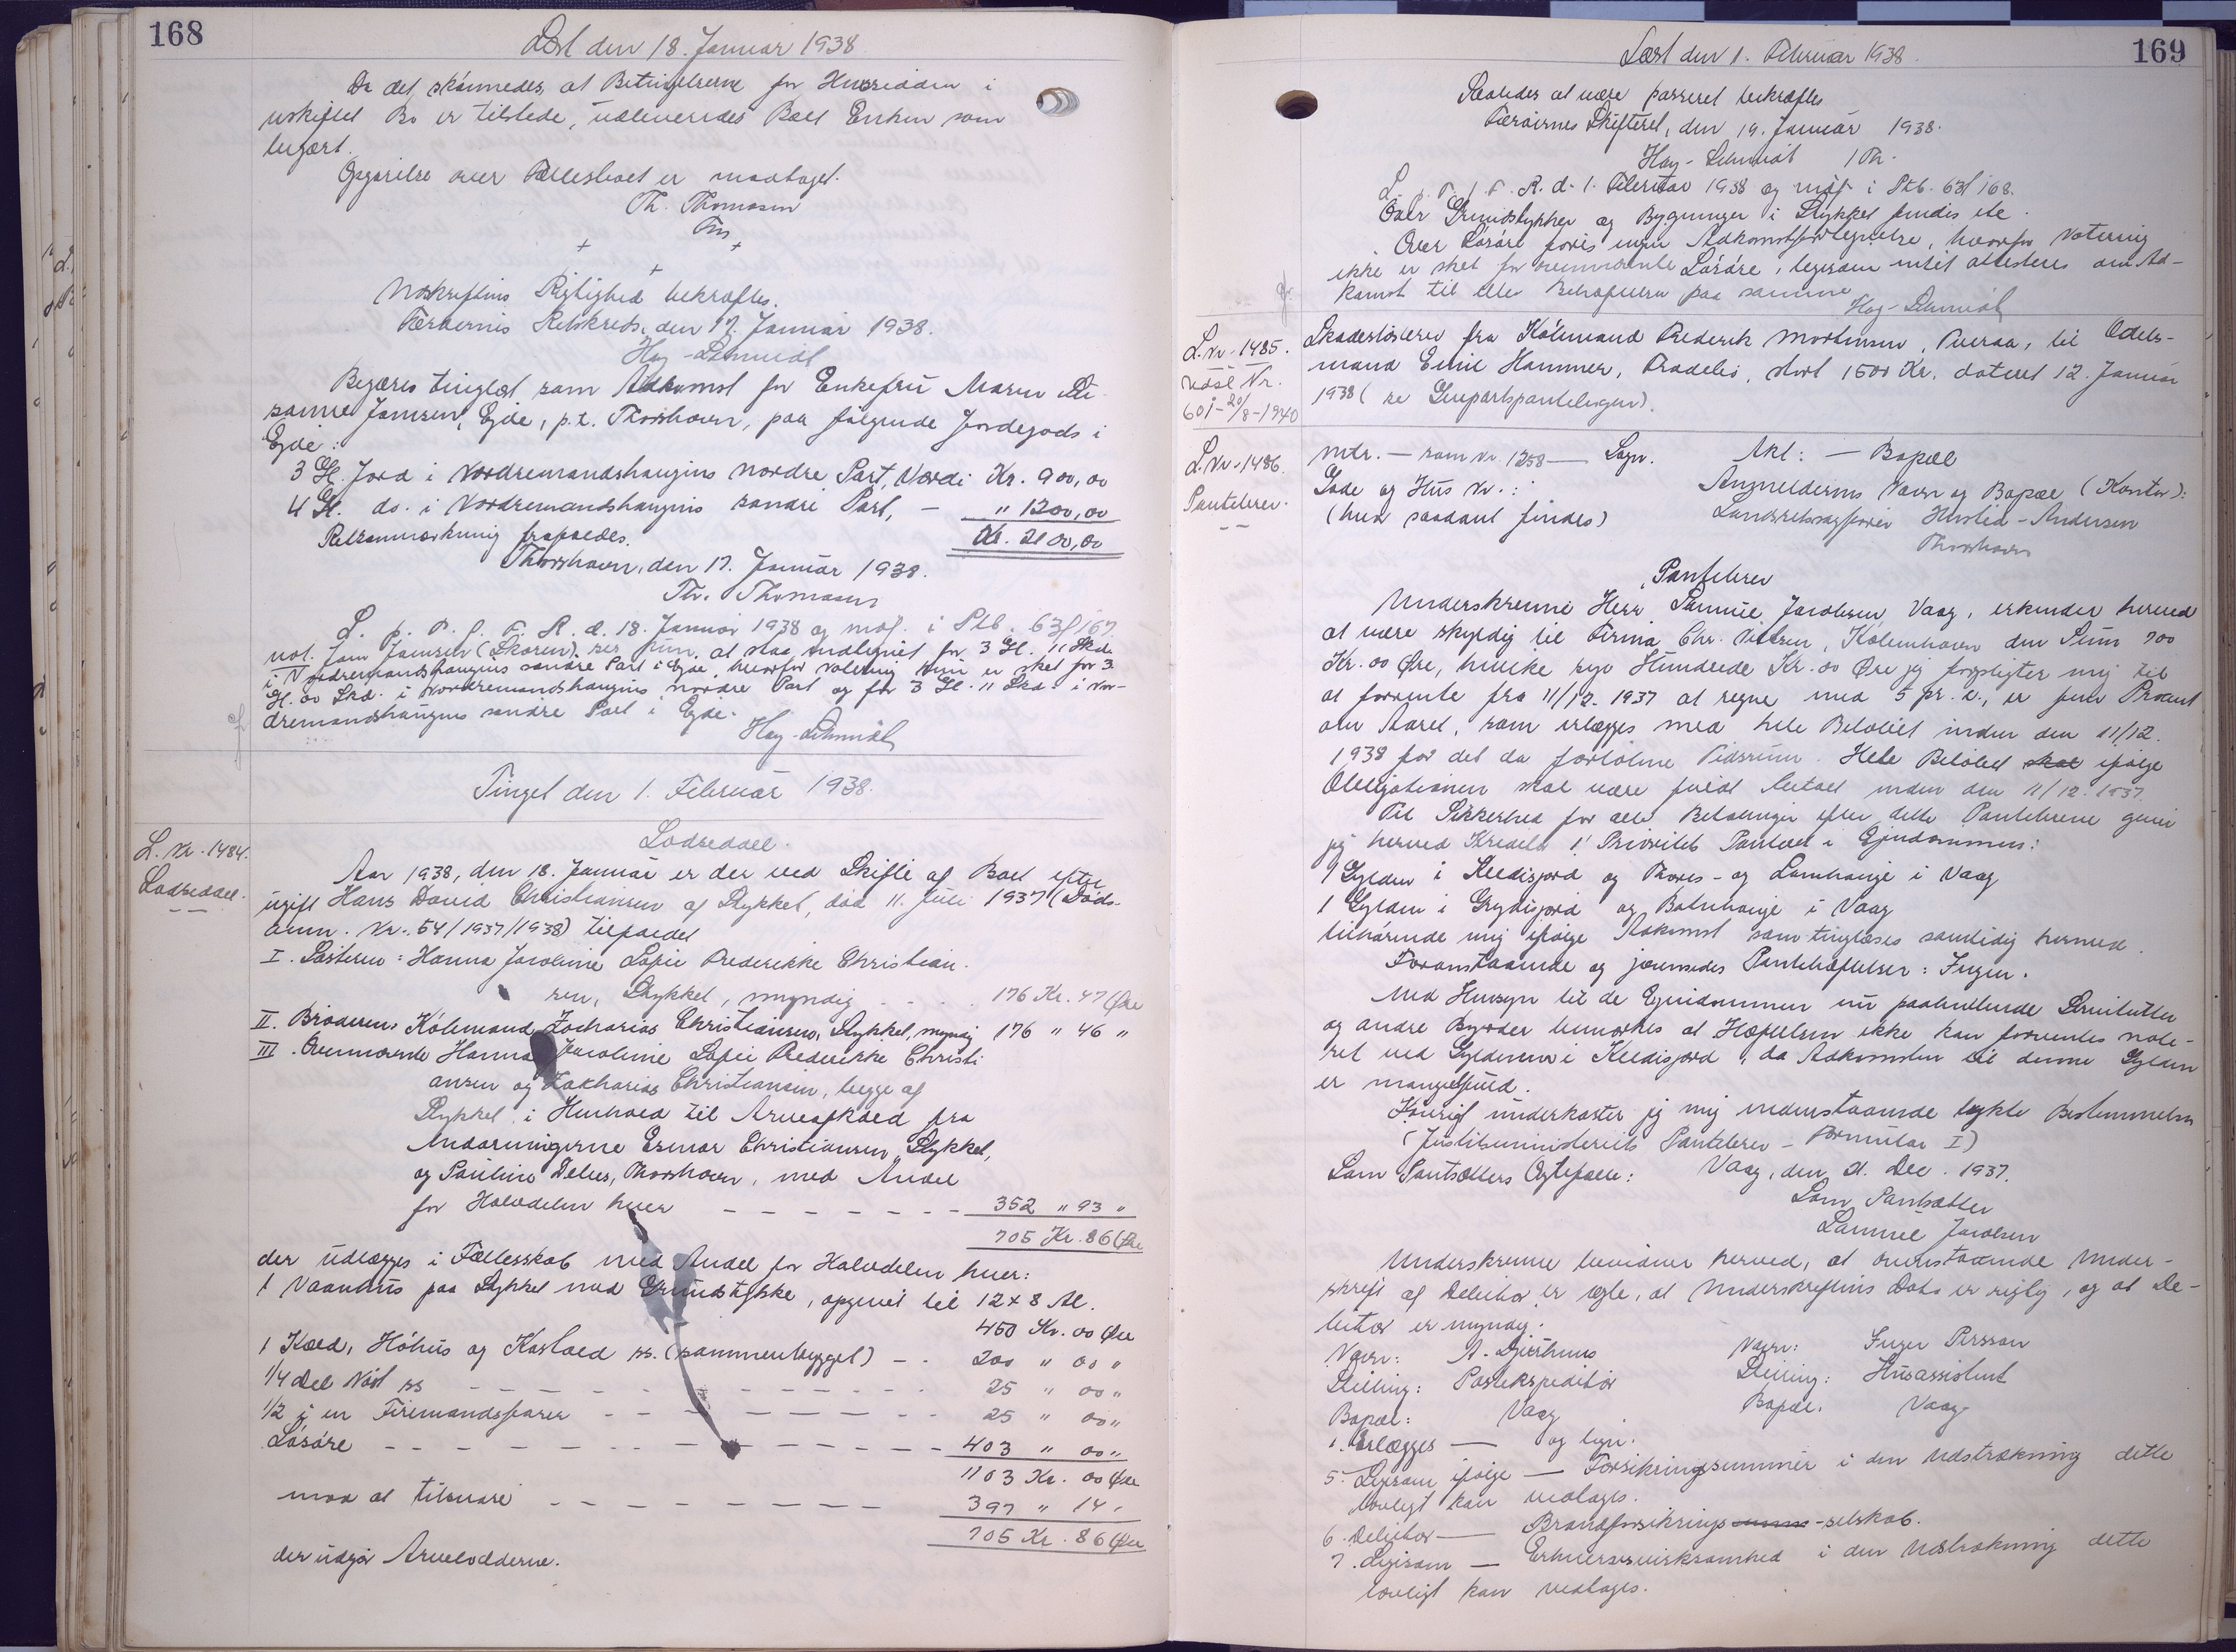 168
Læst den 18. Januar 1938
Da det skønnedes, at Betingelserne for Hensidden i
uskiftet Bo er tilstede, udleveredes Boet Enken som
begært.
Opgørelse over Fællesboet er modtaget.
Th. Thomasen
Fm
Udskriftens Rigtighed bekræftes.
Færøernes Retskreds, den 17. Januar 1938.
Hay-Schmidt
Begæres tinglæst som Adkomst for Enkefru Maren Su
sanne Jamsen, Ejde, p.t. Thorshavn, paa følgende Jordegods i
Ejde:
3 Gl. Jord i Nordremandshaugins nordre Part, Værdi Kr. 900,00
4 Gl. do. i Nordremandshaugins søndre Part, — " 1200,00
Retsanmærkning frafaldes. Kr. 2100,00
Thorshavn, den 17. Januar 1938.
Th. Thomasen
L. p. T. f. F. R. d. 18. Januar 1938 og mof. i Ptb. 63f 167.
not. Jam Jamsen (Skoren) ses kun at staa antegnet for 3 Gl. " Skd.
i Nordremandshaugins søndre Part i Ejde, hvorfor notering kun er sket for 3
Gl. 00 Skd. i Nordremandshaugins nordre Part og for 3 Gl. " Skd. i Nor-
dremandshaugins søndre Part i Ejde.
Hay-Schmidt
Tinget den 1. Februar 1938.
L. Nr. 1484.
Lodseddel.
Lodseddel.
Aar 1938, den 18. Januar er der ved Skifte af Boet efter
ugift Hans David Christiansen af Stykket, død 11. Juli 1937 (Døds-
anm. Nr. 54/1937/1938) tilfaldet
I. Søsteren: Hanna Jacobine Sofie Frederikke Christian-
sen, Stykket, myndig - - - 176 Kr. 47 Øre
II. Broderen Købmand Zacharias Christiansen, Stykket, myndig 176 " 46 "
III. Ovennævnte Hanna Jacobine Sofie Frederikke Christi
ansen og Zakharias Christiansen, begge af
Stykket i Henhold til Arveafkald fra
Andarvingerne Ermar Christiansen, Stykket,
og Pauline Delus, Thorshavn, med Andel
for Halvdelen hver - - - - - - - 352 " 93 "
705 Kr. 86 Øre
der udlægges i Fællesskab med Andel for Halvdelen hver:
1 Vaanhus paa Stykket med Grundstykke, opgivet til 12 x 8 Al.
450 Kr. 00 Øre
1 Kæld, Høhus og Kostald ss. (sammenbygget) - - 200 " 00 "
1/4 Del Nøst ss - - - - - - - - 25 " 00 "
1/2 i en Firemandsfarer - - - - - - - 25 " 00 "
Løsøre - - - - - - - - - - - 403 " 00 "
1103 Kr. 00 Øre
mod at tilsvare - - - - - - - - 397 " 14 "
705 Kr. 86 Øre
der udgør Arvelodderne.
169
Læst den 1. Februar 1938.
Saaledes at være passeret bekræftes
Færøernes Skifteret, den 19. Januar 1938.
Hay-Schmidt /Th.
L. p. T. f. F. R. d. 1. Februar 1938 og mof. i Ptb. 63f 168.
Over Grundstykker og Bygninger i Stykket findes ikke
Over Løsøre føres ingen Adkomstfortegnelse, hvorfor Notering
ikke er sket for ovennævnte Løsøre, ligesom intet attesteres om Ad-
komst til eller Behæftelser paa samme
Hay-Schmidt
L. Nr. 1485.
udsl Nr.
601-20/8-1940
Skadesløsbrev fra Købmand Frederik Mortensen, Tveraa, til Odels-
mand Emil Hammer, Frodebø, stort 1500 Kr. dateret 12. Januar
1938 (se Genpartspantebogen).
L. Nr. 1486.
Pantebrev.
Mtr. — som Nr. 1258 — Sogn. Akt: — Bopæl
Gade og Hus Nr.: Anmelderens Navn og Bopæl (Kontor):
(hvor saadant findes) Landsretssagfører Husted-Andersen
Thorshavn
Pantebrev
Underskrevne Herr Samuel Jacobsen, Vaag, erkender herved
at være skyldig til Firma Chr. Nielsen, København den Sum 700
Kr. 00 Øre, hvilke syv Hundrede Kr. 00 Øre jeg forpligter mig til
at forrente fra 11/12. 1937 at regne med 5 pr. c., er fem Procent
om Aaret, som erlægges med hele Beløbet inden den 11/12.
1938 for det da forløbne Tidsrum. Hele Beløbet skal ifølge
Obligationen skal være fuldt betalt inden den 11/12 1937.
Til Sikkerhed for alle Betalinger efter dette Pantebrev giver
jeg herved Kreditor 1' Prioritets Panteret i Ejendommen:
1 Gylden i Kledisjord og Thores- og Lamhauge i Vaag
1 Gylden i Grydisjord og Botnhauge i Vaag
tilhørende mig ifølge Adkomst som tinglæses samtidig hermed.
Foranstaaende og jævnsides Pantehæftelser: Ingen.
Med Hensyn til de Ejendommen nu paahvilende Servitutter
og andre Byrder bemærkes at Hæftelsen ikke kan forventes note-
ret ved Gyldenen i Kledisjord, da Adkomsten til denne Gylden
er mangelfuld.
Iøvrigt underkaster jeg mig nedenstaaende trykte Bestemmelser
(Justitsministeriets Pantebrev - Formular I)
Som Pantsætters Ægtefælle: Vaag, den 21. Dec. 1937.
Som Pantsætter
Samuel Jacobsen
Underskrevne bevidner herved, at ovenstaaende Under-
skrift af Debitor er ægte, at Underskriftens Dato er rigtig, og at De-
bitor er myndig.
Navn: A. Djurhuus Navn: Inger Persson
Stilling: Postekspeditør Stilling: Husassistent
Bopæl: Vaag Bopæl: Vaag
1. Erlægges — og lign.
5. Ligesom ifølge — Forsikringssummer i den Udstrækning dette
lovligt kan vedtages.
6. Debitor — Brandforsikrings-selskab.
7. Ligesom — Erhvervsvirksomhed i den Udstrækning dette
lovligt kan vedtages.